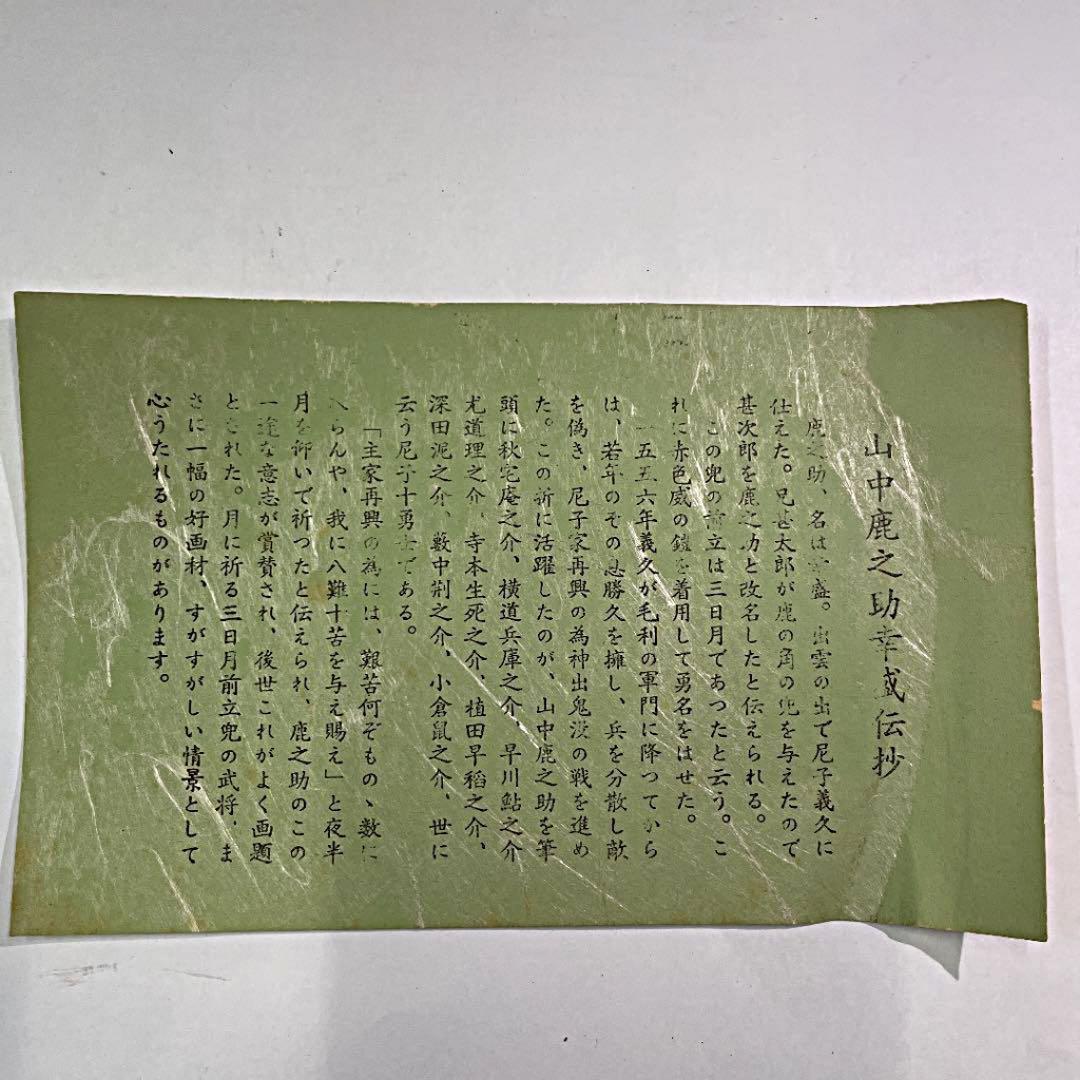 山中鹿之助幸盛伝抄
鹿之助、名は幸盛。出雲の出で尼子義久に
仕えた。兄甚太郎が鹿の角の兜を与えたので
甚次郎を鹿之助と改名したと伝えられる。
この兜の前立は三日月であつたと云う。こ
れに赤色威の鎧を着用して勇名をはせた。
一五五六年義久が毛利の軍門に降つてから
は、若年のその忠勝久を擁し、兵を分散し敵
を偽き、尼子家再興の為神出鬼没の戦を進め
た。この折に活躍したのが、山中鹿之助を筆
頭に秋宅庵之介、横道兵庫之介、早川鮎之介
尤道理之介、寺本生死之介、植田早稲之介、
深田泥之介、藪中荊之介、小倉鼠之介、世に
云う尼子十勇士である。
「主家再興の為には、艱苦何ぞものゝ数に
入らんや、我に八難十苦を与え賜え」と夜半
月を仰いで祈つたと伝えられ、鹿之助のこの
一途な意志が賞賛され、後世これがよく画題
とされた。月に祈る三日月前立兜の武将、ま
さに一幅の好画材、すがすがしい情景として
心うたれるものがあります。